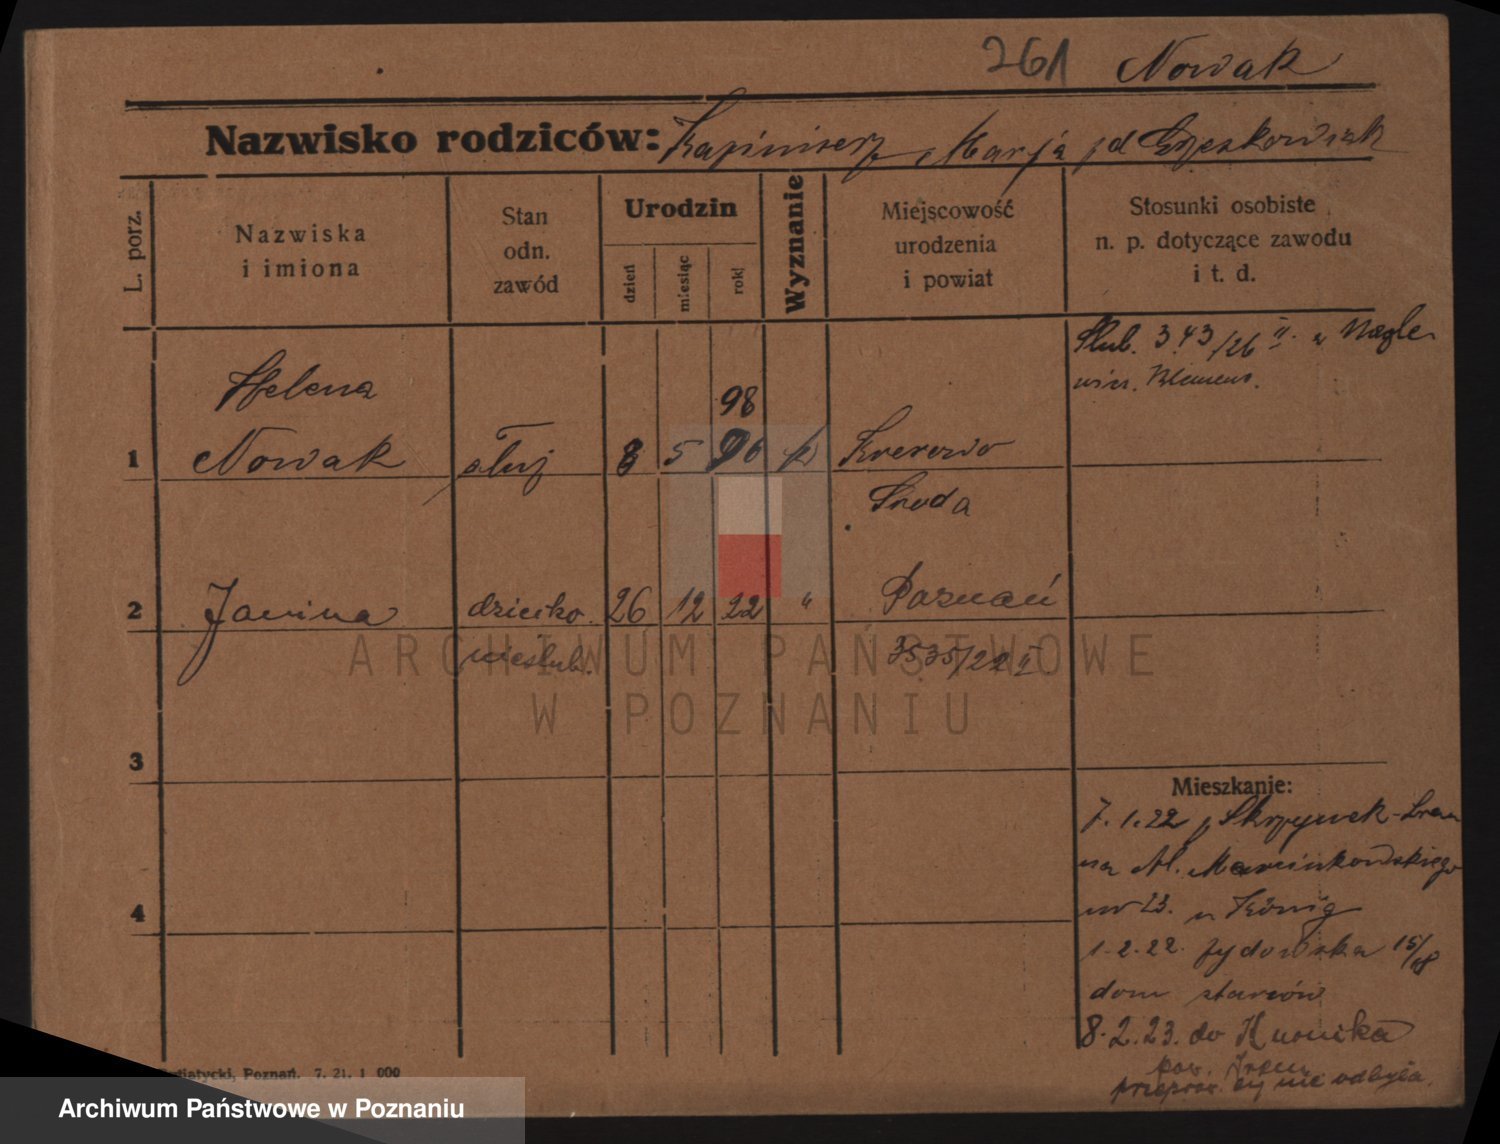 261 Nowak
Nazwisko rodziców: Kazimierz, Marja zd
L. porz.
Nazwiska
i imiona
Stan
odn.
zawód
Urodzin
dzień
miesiąc
rok
Wyznanie
Miejscowość
urodzenia
i powiat
Stosunki osobiste
n. p. dotyczące zawodu
i t. d.
Ślub. 343/26 II. z
Klemens.
Helena
98
1 Nowak służ 8 5 96 k
Środa
2 Janina dziecko 26 12 22 " Poznań
nieślub. 3535/22 II
3
4
Mieszkanie:
7.1.22 z
na Al. Marcinkowskiego
nr 23. u König
1.2.22. Żydowska 15/18
dom starców
8.2.23. do Kurnika
pow. Śrem
przeprow. się nie odbyła.
Poznań. 7. 21. 1 000
ARCHIWUM PAŃSTWOWE
W POZNANIU
Archiwum Państwowe w Poznaniu